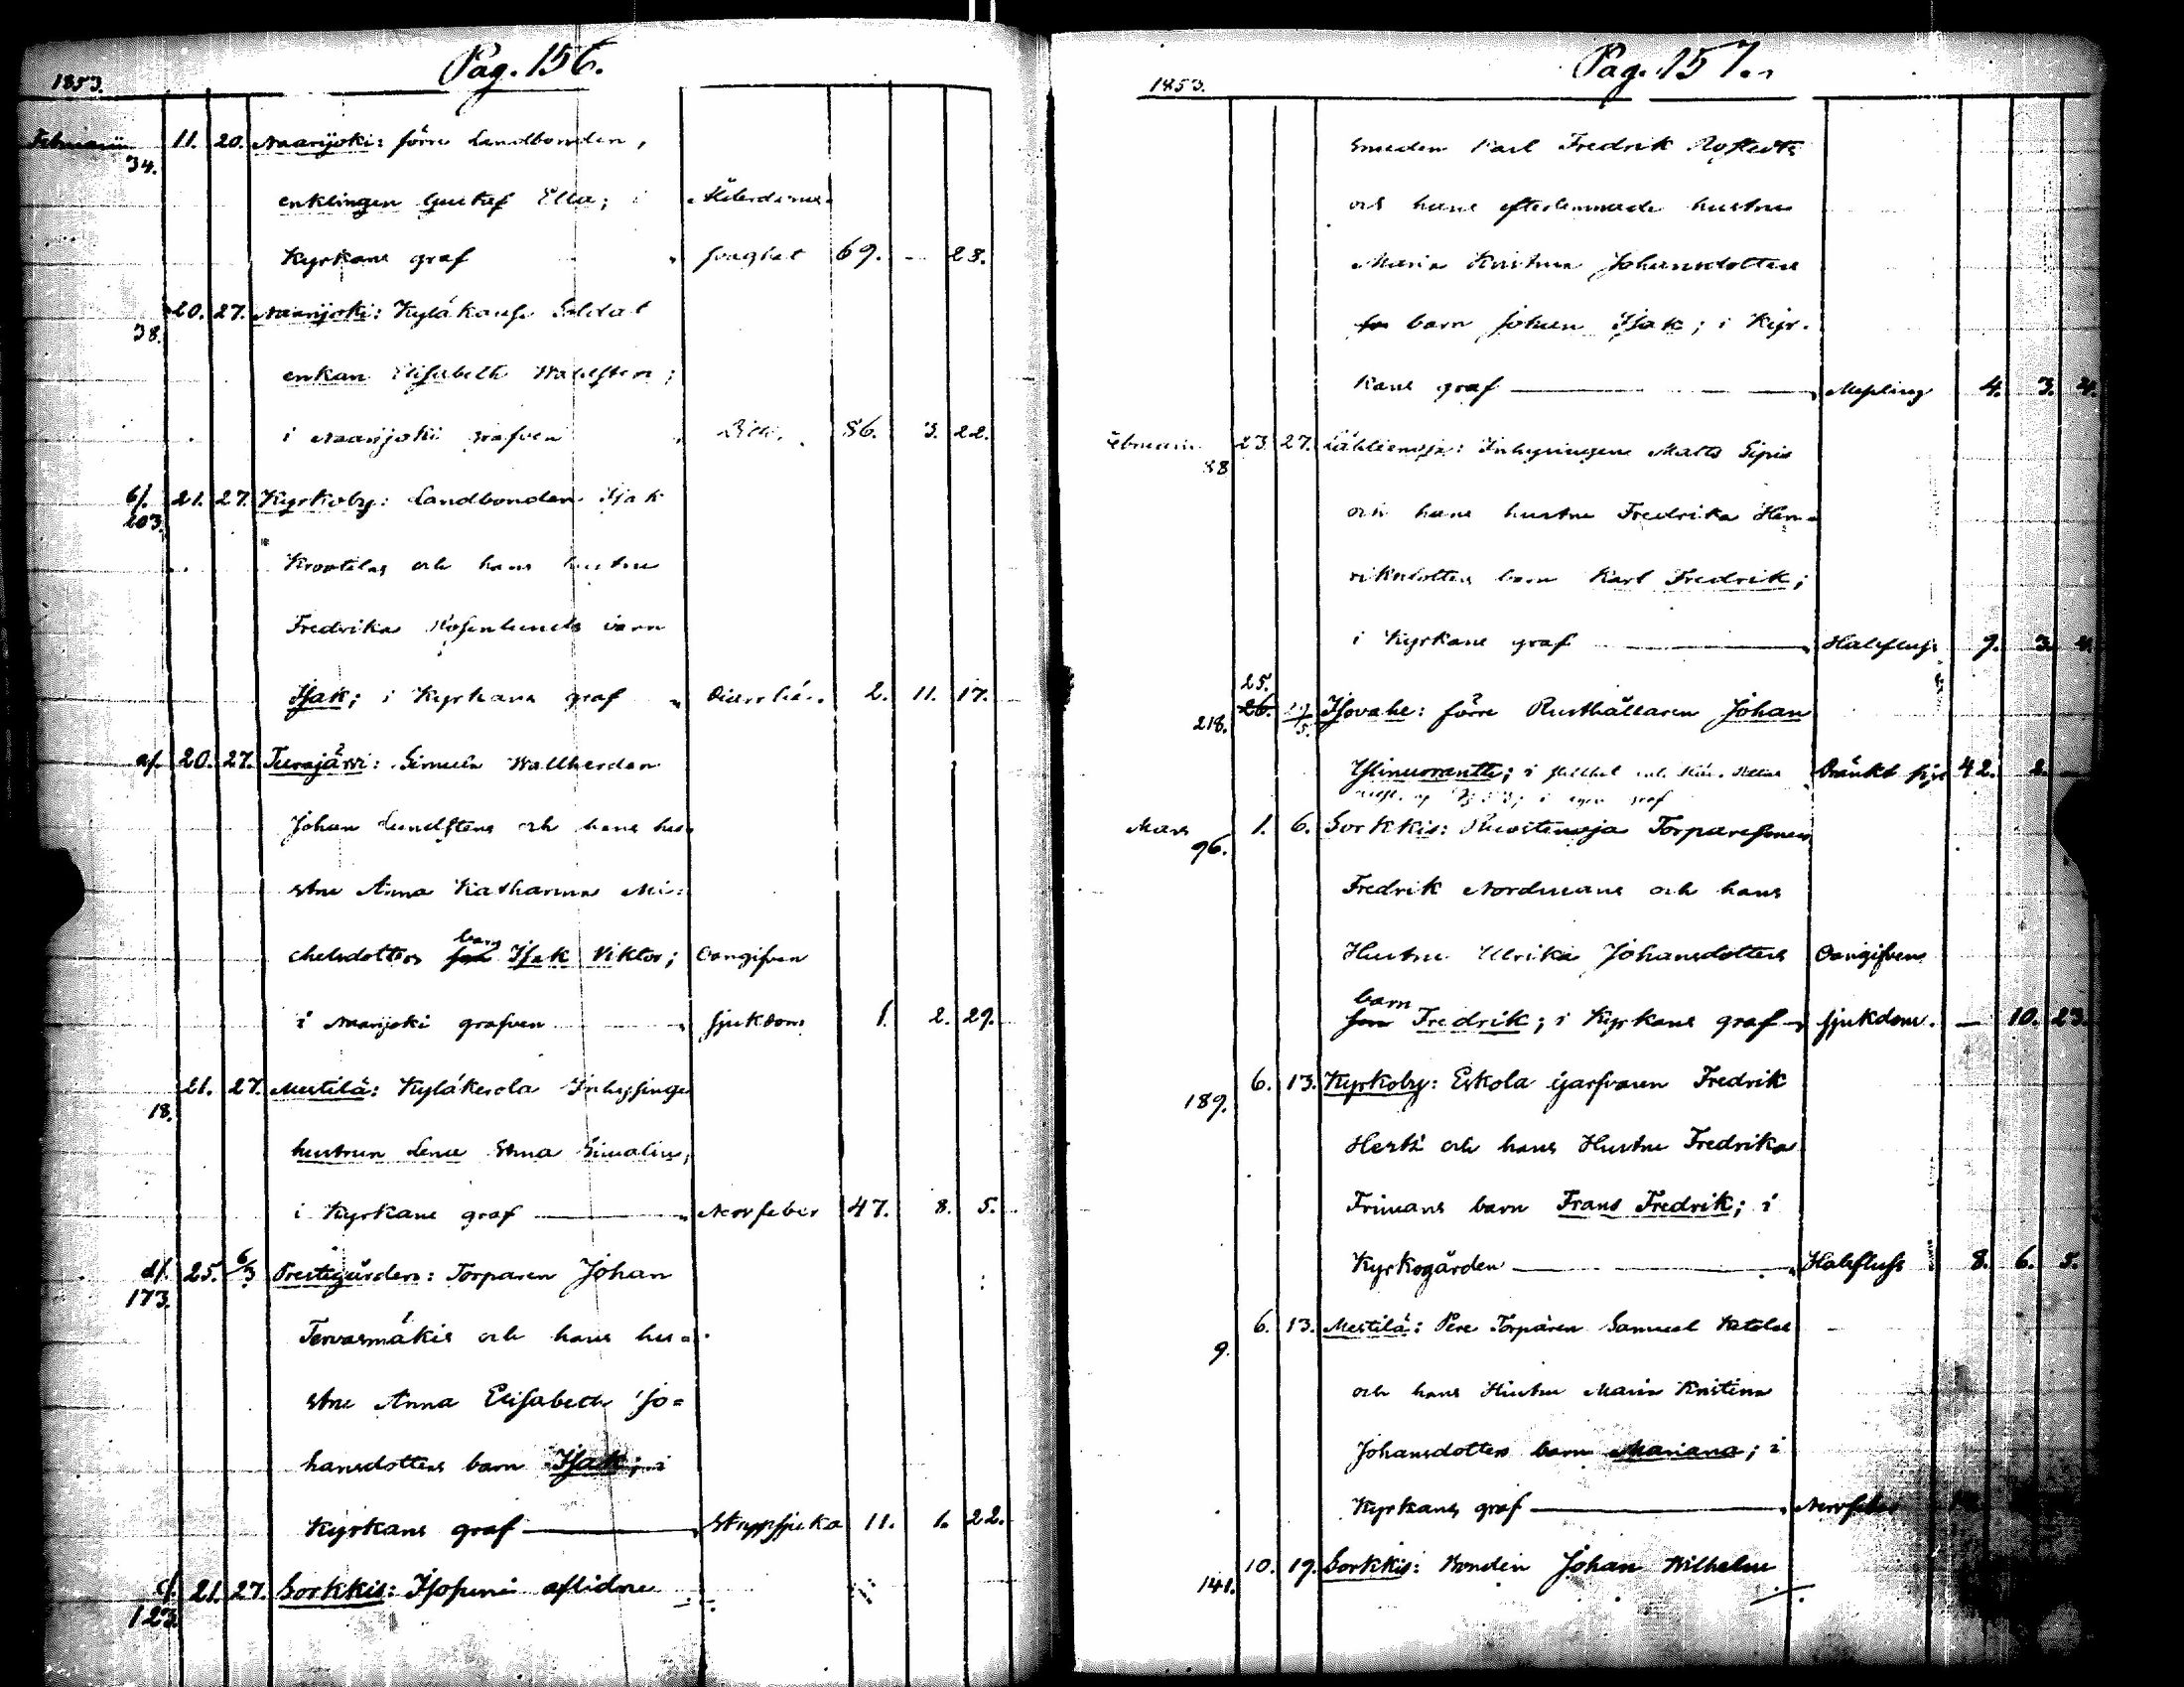 Pag. 156.
1853.
Februarii 11. 20. Naarijoki: förre Landbonden,
34.
enklingen Gustaf Ella; i Ålderdoms-
Kyrkans graf svaghet 69. — 23.
20. 27. Naarijoki: Kyläkausе Soldat
38.
enkan Elisabeth Wahlsten;
i Naarijoki grafven 86. 3. 22.
b/. 21. 27. Kyrkoby: Landbonden Isak
203.
Krootilas och hans hustru
Fredrika Rosenlunds barn
Isak; i Kyrkans graf Diarrhé 2. 11. 17.
a/. 20. 27. Turajärvi: Simula Wallherden
Johan Lundstens och hans hu-
stru Anna Katharina Mi-
chelsdotters barn Isak Viktor; Oangifven
i Naarijoki grafven sjukdom 1. 2. 29.
21. 27. Mestilä: Kyläkerola Inhysinge
18.
hustrun Lena Stina Simalin;
i Kyrkans graf Nervfeber 47. 8. 5.
d/. 25. 6/3 Prestegården: Torparen Johan
173.
Tervasmäkis och hans hu-
stru Anna Elisabeth Jo=
hansdotters barn Isak; i
Kyrkans graf Strypsjuka 11. 1. 22.
c/. 21. 27. Sorkkis: Isopere aflidne
123.
Pag. 157.
1853.
Smeden Karl Fredrik
och hans efterlemnade hustru
Maria Kristina Johansdotters
barn Johan Isak; i Kyr-
kans graf Messling 4. 3. 4.
Februarii 23. 27. Inhysingen Matts Sipis
88
och hans hustru Fredrika Hen-
riksdotters barn Karl Fredrik;
i Kyrkans graf Halsfluss 9. 3. 4.
25.
26. 27/5. Isovahe: förre Rusthållaren Johan
218.
i egen graf Dränkt sig 42. 2. —
Mars 1. 6. Sorkkis: Ruostenoja Torparesonen
96.
Fredrik Nordmans och hans
Hustru Ulrika Johansdotters Oangifven
barn Fredrik; i Kyrkans graf sjukdom. — 10. 23.
6. 13. Kyrkoby: Eskola Garfvaren Fredrik
189.
Herts och hans Hustru Fredrika
Frimans barn Frans Fredrik; i
Kyrkogården Halsfluss 8. 6. 5.
6. 13. Mestilä: Pere Torparen Samuel
9.
och hans Hustru Maria Kristina
Johansdotters barn Mariana; i
Kyrkans graf Nervfeber
10. 19. Sorkkis: Bonden Johan Wilhelm
141.